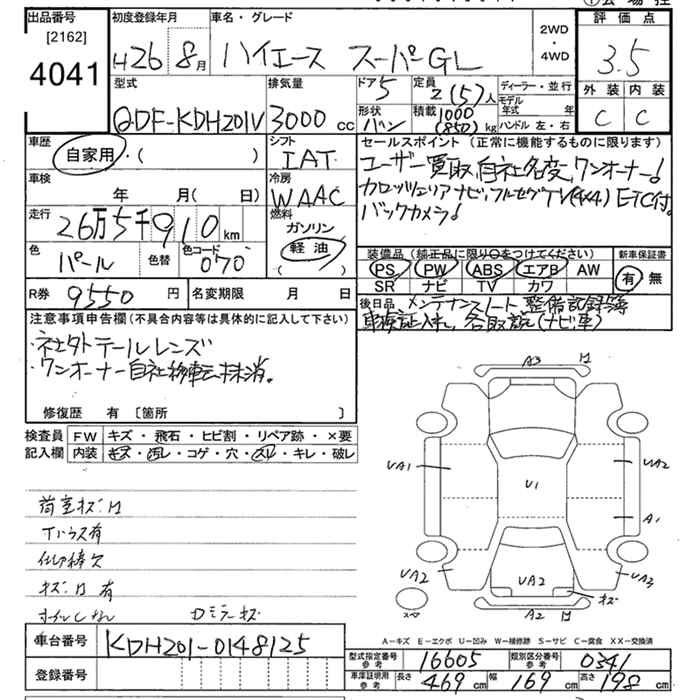 出品番号 初度登録年月 車名・グレード 評価点
[2162] 2WD
4041 H26年 8月 ハイエース スーパーGL ・ 3.5
4WD
型式 排気量 ドア 5 定員 2(5)人 ディーラー・並行 外装 内装
QDF-KDH201V 3000cc 形状 バン 積載 1000(850)kg モデル年式 年 C C
ハンドル 左・右
車歴 シフト セールスポイント (正常に機能するものに限ります)
自家用・( ) IAT ユーザー買取、自社名変、ワンオーナー!
車検 冷房 カロッツェリアナビ、フルセグTV(4x4) ETC付。
年 月( 日) WAAC バックカメラ!
走行 26万5千910km 燃料 ガソリン
軽油
( )
色 パール 色替 色コード 070
装備品 (純正品に限り○をつけてください) 新車保証書
PS PW ABS エアB AW 有・無
SR ナビ TV カワ
R券 9550円 名変期限 月 日
後日品 メンテナンスノート 整備記録簿
車検証入れ、各取説(ナビ、車)
注意事項申告欄(不具合内容等は具体的に記入して下さい)
・社外テールレンズ
・ワンオーナー自社移転抹消。
修復歴 有 〔箇所 〕
検査員 FW キズ・飛石・ヒビ割・リペア跡・×要
記入欄 内装 キズ・汚レ・コゲ・穴・スリ・キレ・破レ
荷室キズ
有
キズ 有
A3
UA1 U1 UA2
A1
UA2 UA2 UA3
キズ
スペア A2
A－キズ E－エクボ U－凹み W－補修跡 S－サビ C－腐食 XX－交換済
車台番号 KDH201-0148125
登録番号
型式指定番号 参考 16605 類別区分番号 参考 0341
車庫証明用 参考 長さ 469cm 幅 169cm 高さ 198cm